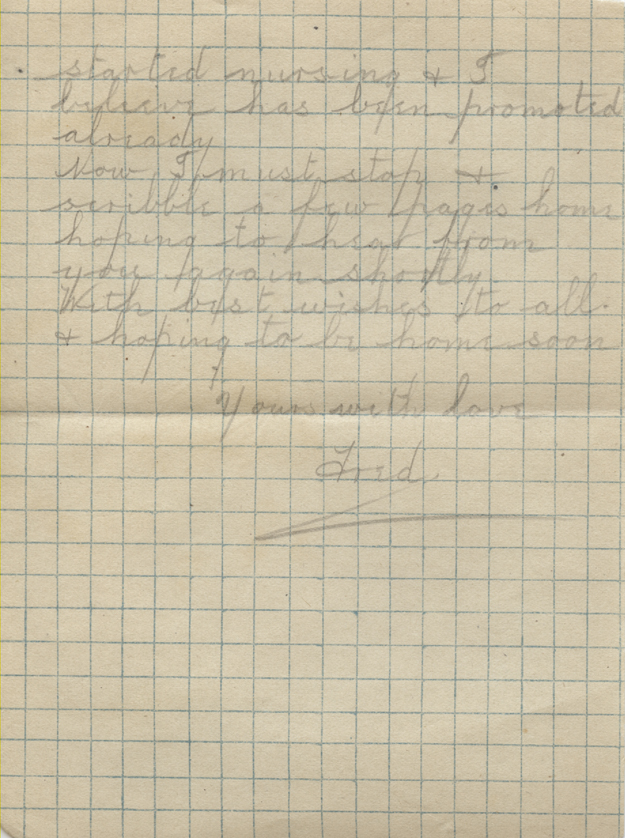 started nursing & I
believe has been promoted
already
Now I must stop &
scribble a few pages home
hoping to hear from
you again shortly.
With best wishes to all.
& hoping to be home soon
Yours with love
Fred